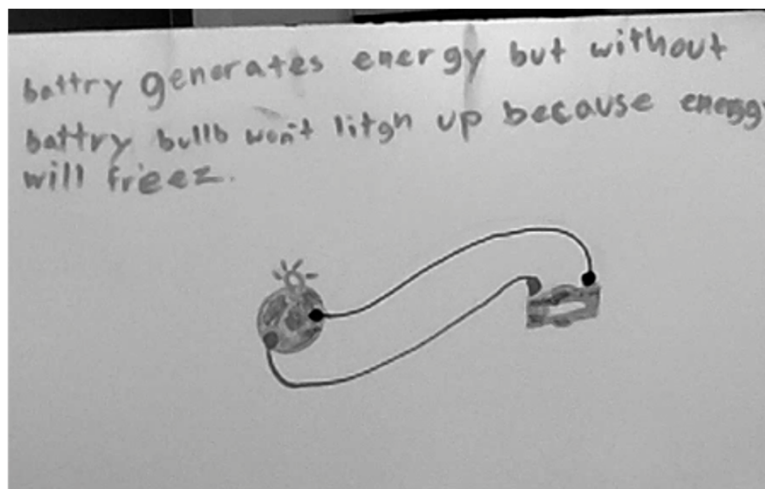 battry generates energy but without
battry bullb won't litgh up because energy
will freez.